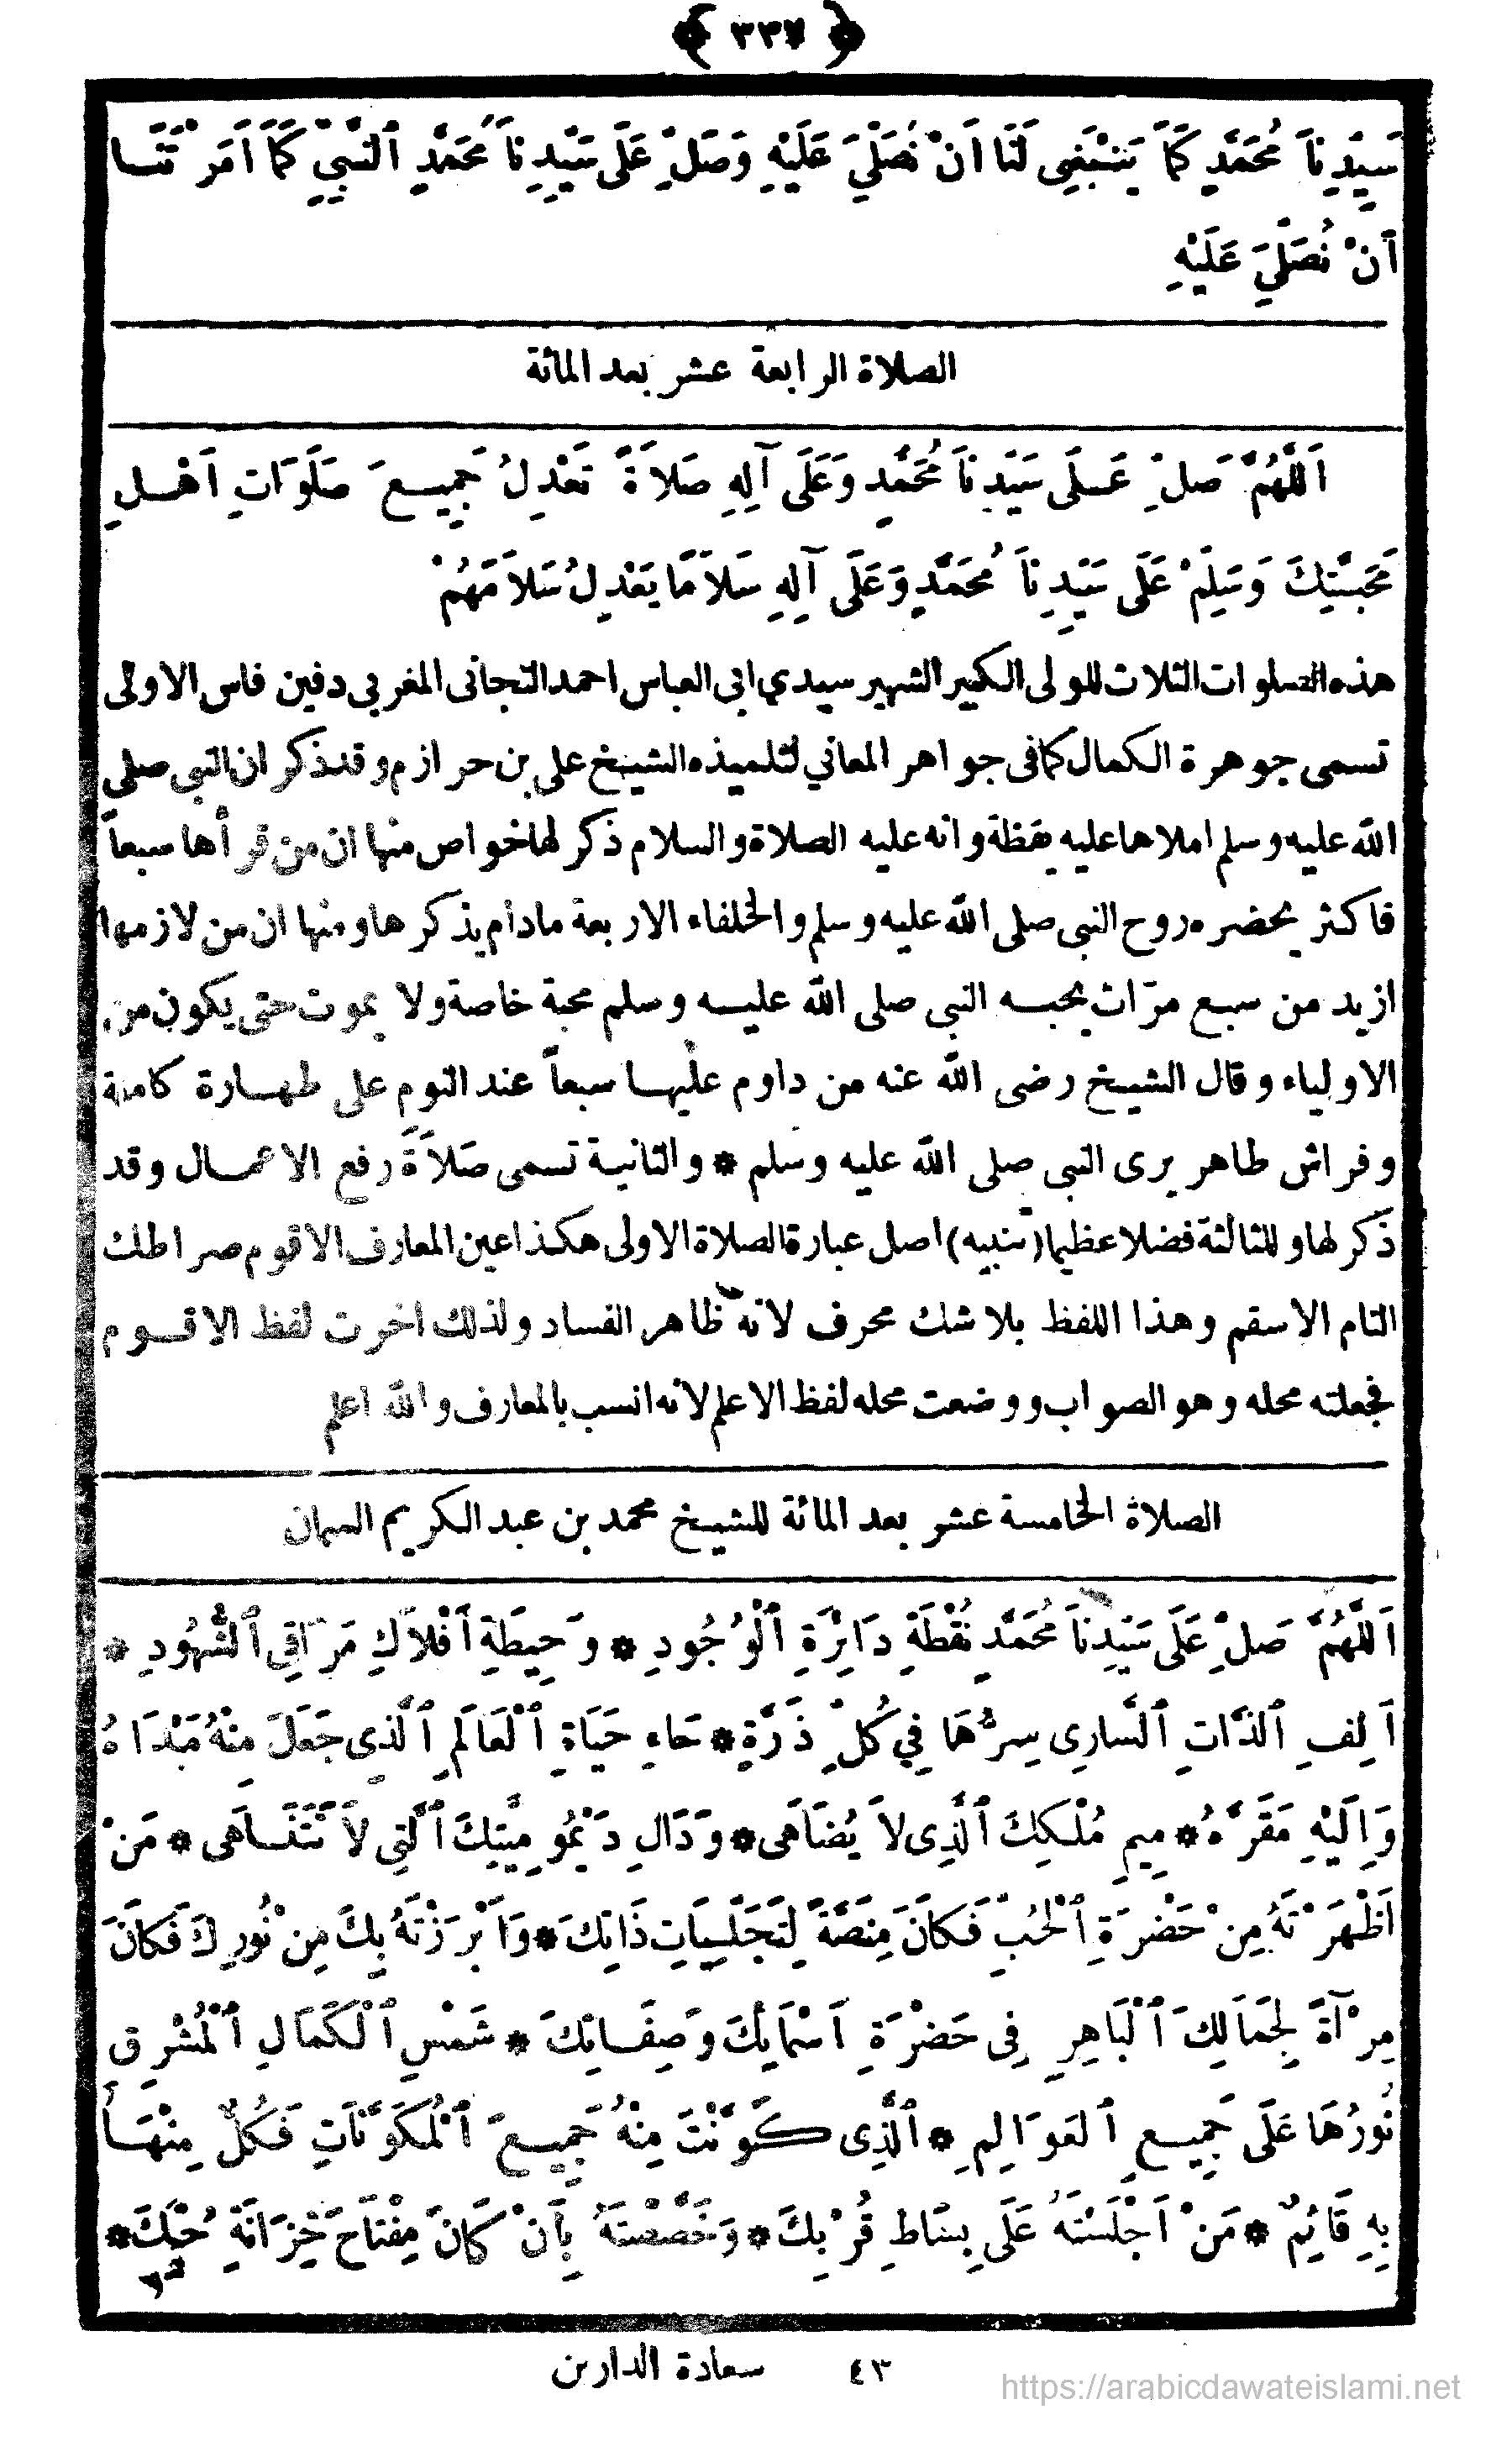 ﴿ ٣٣٧ ﴾
سَيِّدِنَا مُحَمَّدٍ كَمَا يَنْبَغِى لَنَا اَنْ نُصَلِّيَ عَلَيْهِ وَصَلِّ عَلَى سَيِّدِنَا مُحَمَّدٍ ٱلنَّبِيِّ كَمَا اَمَرْتَنَا
اَنْ نُصَلِّيَ عَلَيْهِ
الصلاة الرابعة عشر بعد المائة
اَللّٰهُمَّ صَلِّ عَلَى سَيِّدِنَا مُحَمَّدٍ وَعَلَى آلِهِ صَلاَةً تَعْدِلُ جَمِيعَ صَلَوَاتِ اَهْلِ
مَحَبَّتِكَ وَسَلِّمْ عَلَى سَيِّدِنَا مُحَمَّدٍ وَعَلَى آلِهِ سَلاَمًا يَعْدِلُ سَلاَمَهُمْ
هذه الصلوات الثلاث للولى الكبير الشهير سيدي ابى العباس احمد التجانى المغربي دفين فاس الاولى
تسمى جوهرة الكمال كما فى جواهر المعاني لتلميذه الشيخ على بن حرازم وقد ذكر ان النبى صلى
الله عليه وسلم املاها عليه يقظة وانه عليه الصلاة والسلام ذكر لها خواص منها ان من قرأها سبعاً
فاكثر يحضره روح النبى صلى الله عليه وسلم والخلفاء الاربعة مادام يذكرها ومنها ان من لازمها
ازيد من سبع مرّات يحبه النبى صلى الله عليه وسلم محبة خاصة ولا يموت حتى يكون من
الاولياء وقال الشيخ رضى الله عنه من داوم عليها سبعاً عند النوم على طهارة كاملة
وفراش طاهر يرى النبى صلى الله عليه وسلم * والثانية تسمى صَلاَةَ رفع الاعمال وقد
ذكر لها وللثالثة فضلا عظيما (تنبيه) اصل عبارة الصلاة الاولى هكذا عين المعارف الاقوم صراطك
التام الاسقم وهذا اللفظ بلا شك محرف لانه ظاهر الفساد ولذلك اخرت لفظ الاقوم
فجعلته محله وهو الصواب ووضعت محله لفظ الاعلم لانه انسب بالمعارف والله اعلم
الصلاة الخامسة عشر بعد المائة للشيخ محمد بن عبد الكريم السمان
اَللّٰهُمَّ صَلِّ عَلَى سَيِّدِنَا مُحَمَّدٍ نُقْطَةِ دَائِرَةِ ٱلْوُجُودِ * وَحِيطَةِ اَفْلاَكِ مَرَاقِي ٱلشُّهُودِ *
اَلِفِ ٱلذَّاتِ ٱلسَّارِى سِرُّهَا فِي كُلِّ ذَرَّةٍ * حَاءِ حَيَاةِ ٱلْعَالَمِ ٱلَّذِى جَعَلَ مِنْهُ مَبْدَاهُ
وَاِلَيْهِ مَقَرَّهُ * مِيمِ مُلْكِكَ ٱلَّذِى لاَ يُضَاهَى * وَدَالِ دَيْمُومِيَّتِكَ ٱلَّتِى لاَ تَتَنَاهَى * مَنْ
اَظْهَرْتَهُ مِنْ حَضْرَةِ ٱلْحُبِّ فَكَانَ مِنَصَّةً لِتَجَلِّيَاتِ ذَاتِكَ * وَاَبْرَزْتَهُ بِكَ مِنْ نُورِكَ فَكَانَ
مِرْآةً لِجَمَالِكَ ٱلْبَاهِرِ فِى حَضْرَةِ اَسْمَائِكَ وَصِفَاتِكَ * شَمْسِ ٱلْكَمَالِ ٱلْمُشْرِقِ
نُورُهَا عَلَى جَمِيعِ ٱلعَوَالِمِ * ٱلَّذِى كَوَّنْتَ مِنْهُ جَمِيعَ ٱلْمُكَوَّنَاتِ فَكُلٌّ مِنْهَا
بِهِ قَائِمٌ * مَنْ اَجْلَسْتَهُ عَلَى بِسَاطِ قُرْبِكَ * وَخَصَّصْتَهُ بِاَنْ كَانَ مِفْتَاحَ خِزَانَةِ حُبِّكَ *
٤٣ سعادة الدارين
https://arabicdawateislami.net